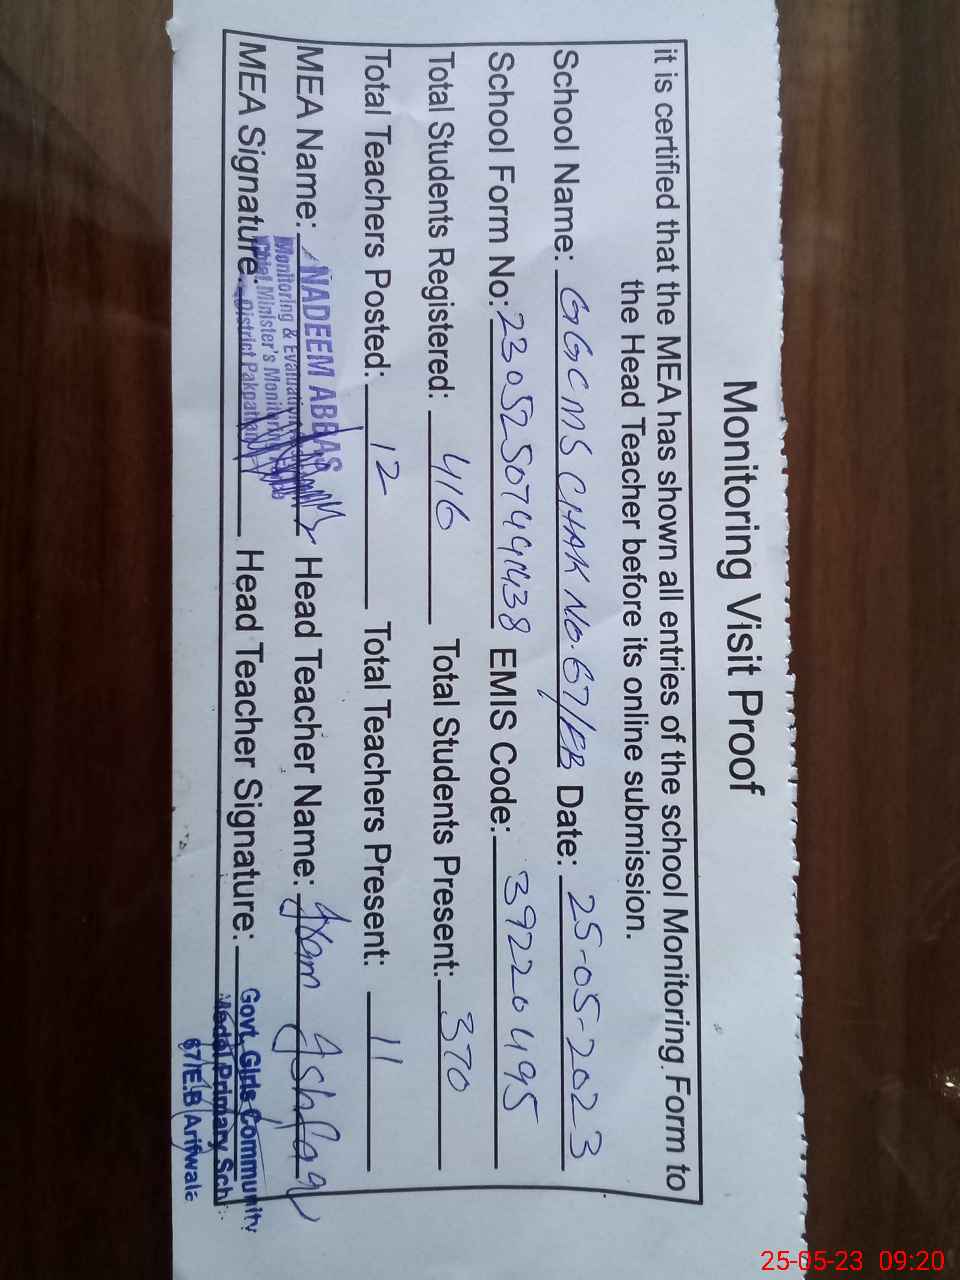 Monitoring Visit Proof
it is certified that the MEA has shown all entries of the school Monitoring Form to
the Head Teacher before its online submission.
School Name: GGCMS CHAK No. 67/EB Date: 25-05-2023
School Form No: EMIS Code: 39220495
Total Students Registered: 416 Total Students Present: 370
Total Teachers Posted: 12 Total Teachers Present: 11
MEA Name: NADEEM ABBAS Head Teacher Name: Ashfaq
Monitoring & Evaluation
Chief Minister's Monitoring
MEA Signature: District Pakpattan Head Teacher Signature:
Govt. Girls Community
Model Primary Sch
67/E.B Arifwala
25-05-23 09:20